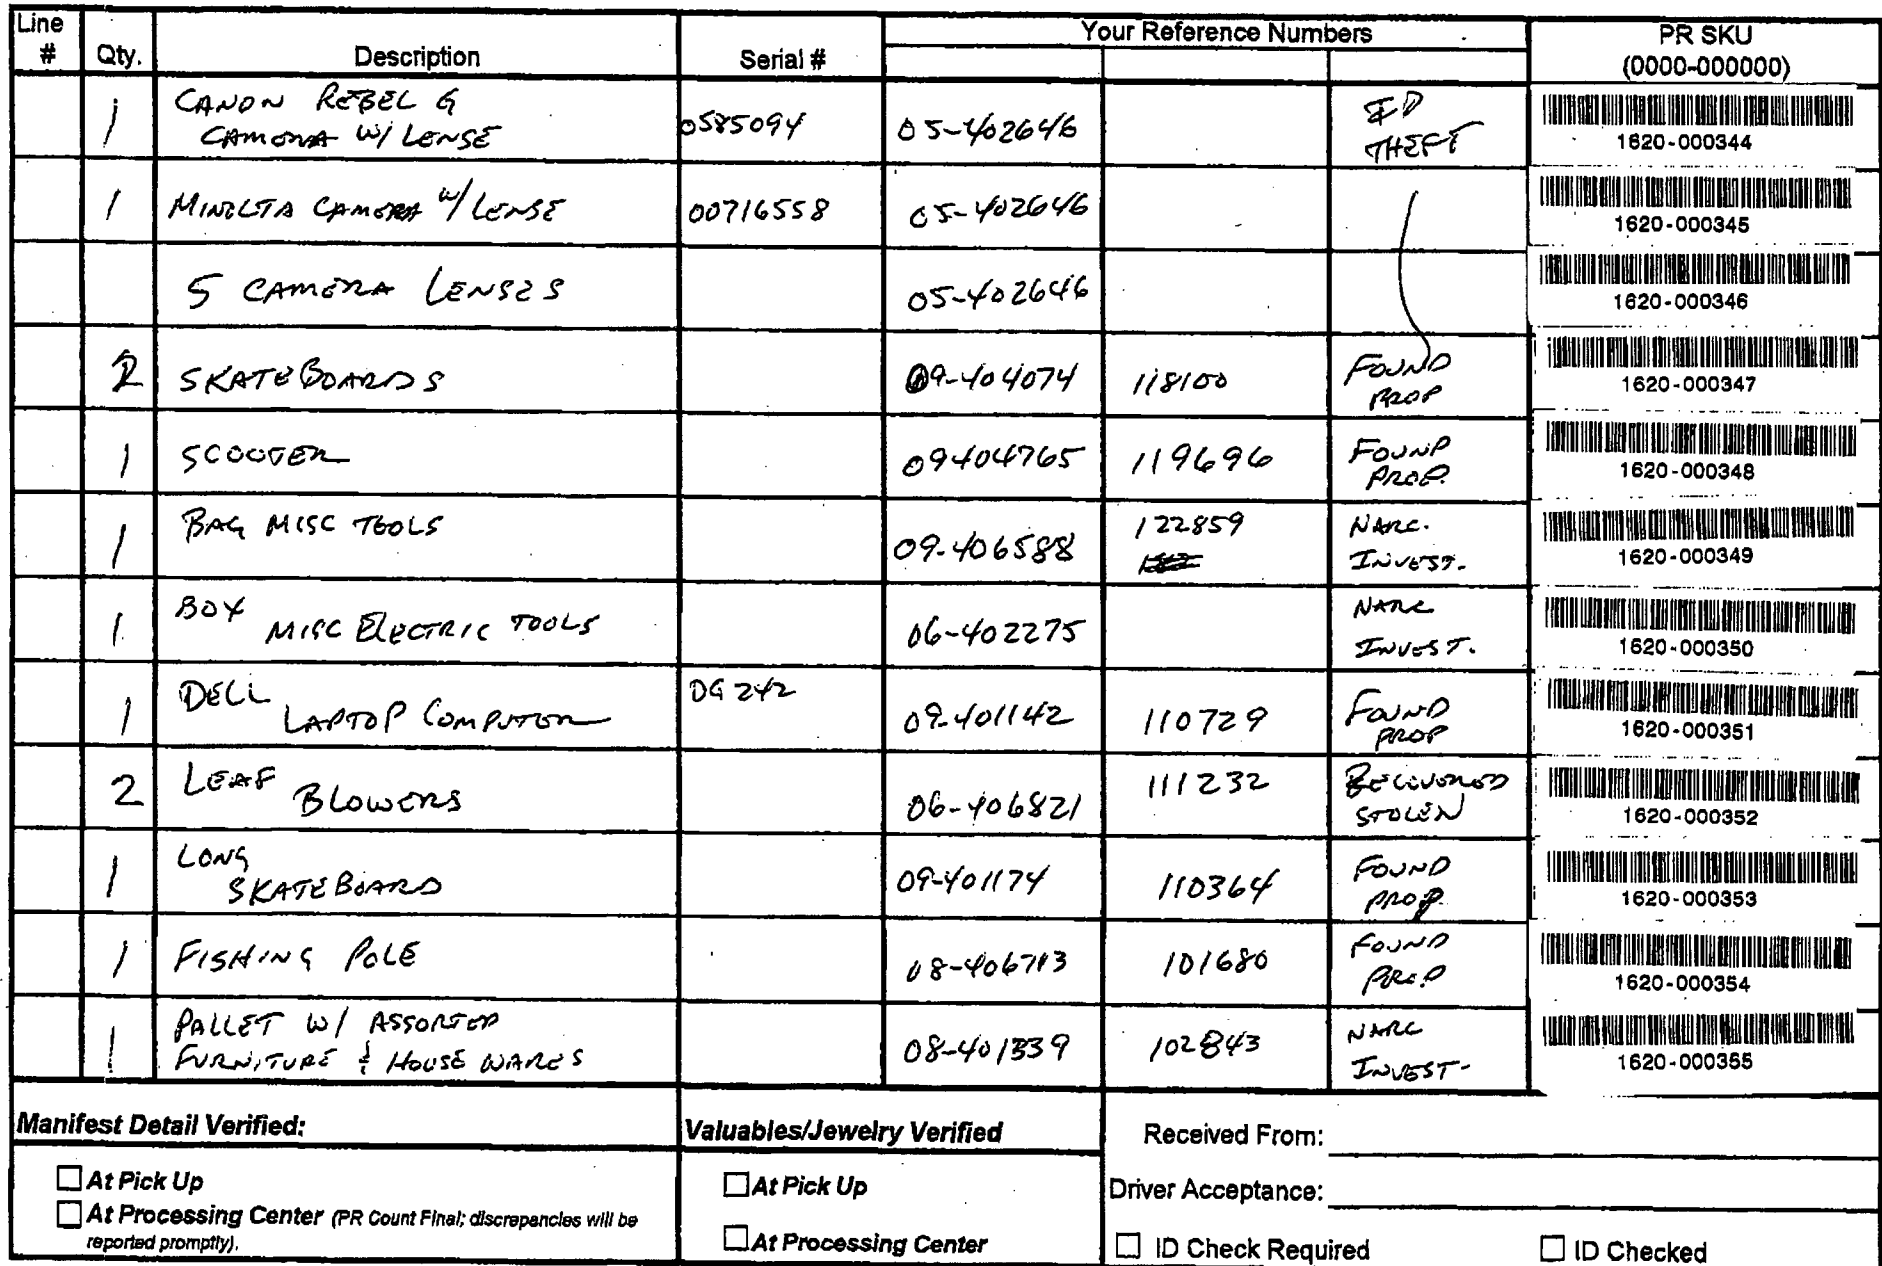 Line # Qty. Description Serial # Your Reference Numbers PR SKU (0000-000000)
1 CANON REBEL G CAMERA W/ LENSE 0585094 05-402646 ID THEFT 1620-000344
1 MINOLTA CAMERA W/ LENSE 00716558 05-402646 1620-000345
5 CAMERA LENSES 05-402646 1620-000346
2 SKATEBOARDS 09-404074 118100 FOUND PROP 1620-000347
1 SCOOTER 09404765 119696 FOUND PROP. 1620-000348
1 BAG MISC TOOLS 09-406588 122859 NARC. INVEST. 1620-000349
1 BOX MISC ELECTRIC TOOLS 06-402275 NARC INVEST. 1620-000350
1 DELL LAPTOP COMPUTER DG242 09-401142 110729 FOUND PROP 1620-000351
2 LEAF BLOWERS 06-406821 111232 RECOVERED STOLEN 1620-000352
1 LONG SKATEBOARD 09-401174 110364 FOUND PROP 1620-000353
1 FISHING POLE 08-406713 101680 FOUND PROP 1620-000354
1 PALLET W/ ASSORTED FURNITURE & HOUSE WARES 08-401339 102843 NARC INVEST. 1620-000355
Manifest Detail Verified: Valuables/Jewelry Verified Received From:
At Pick Up At Pick Up Driver Acceptance:
At Processing Center (PR Count Final; discrepancies will be reported promptly). At Processing Center ID Check Required ID Checked